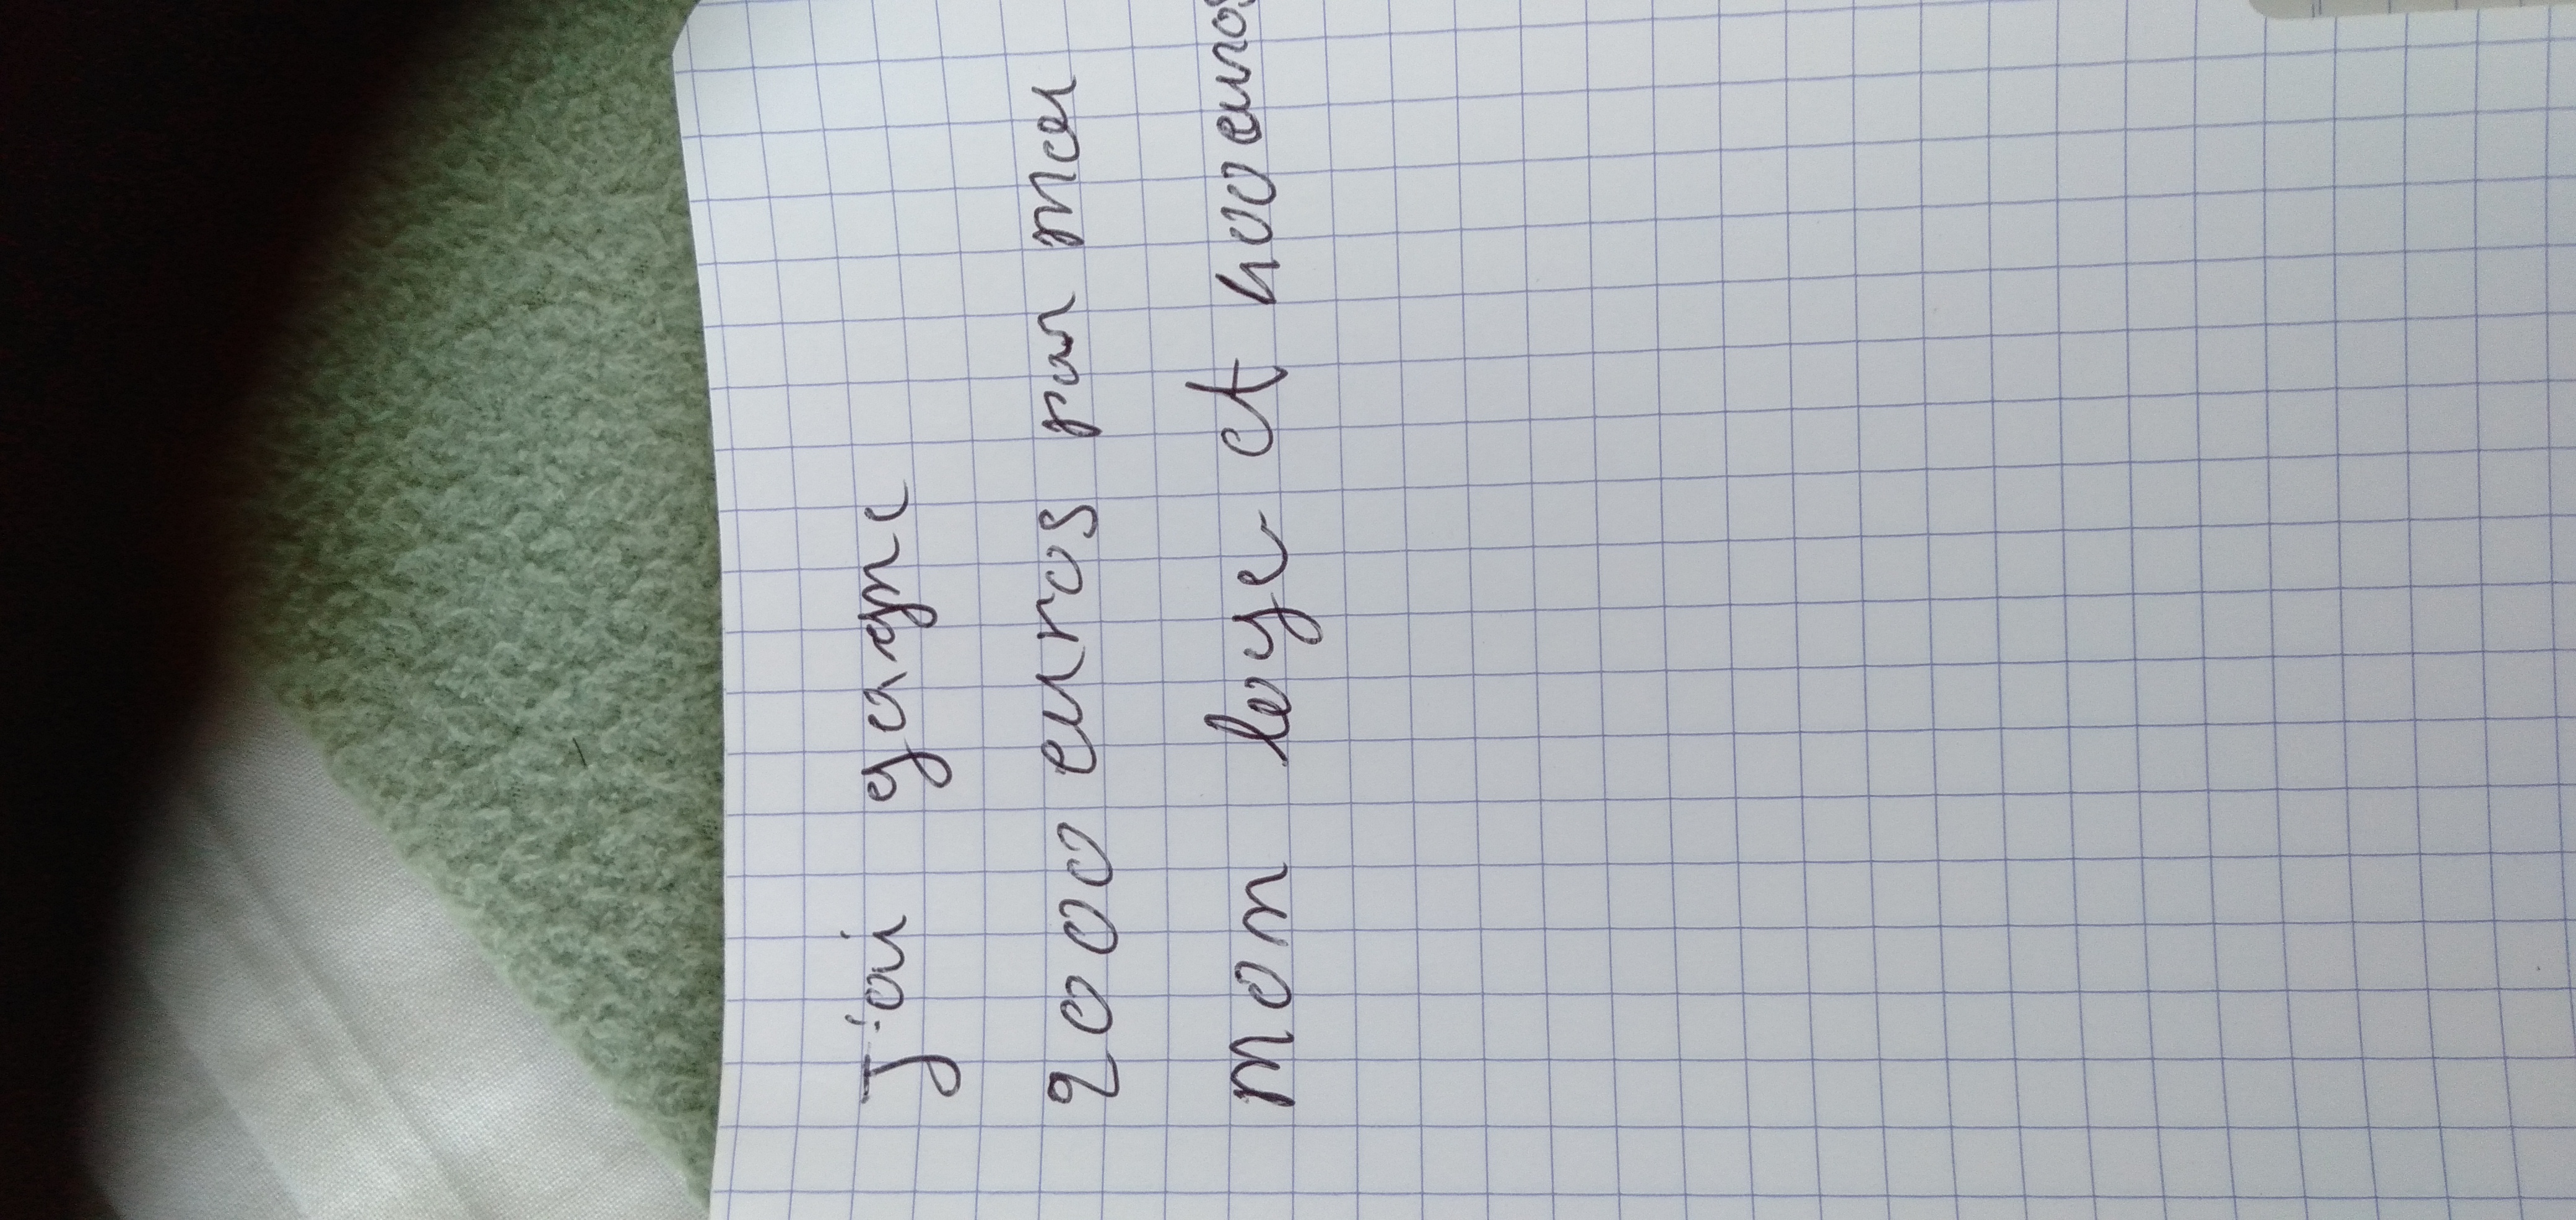 J'ai gagne
2000 euros par mes
mon loye et 400 euros